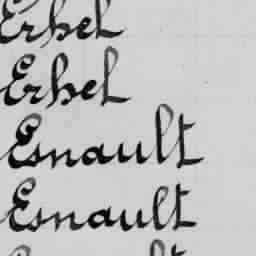 Erhel
Erhel
Esnault
Esnault